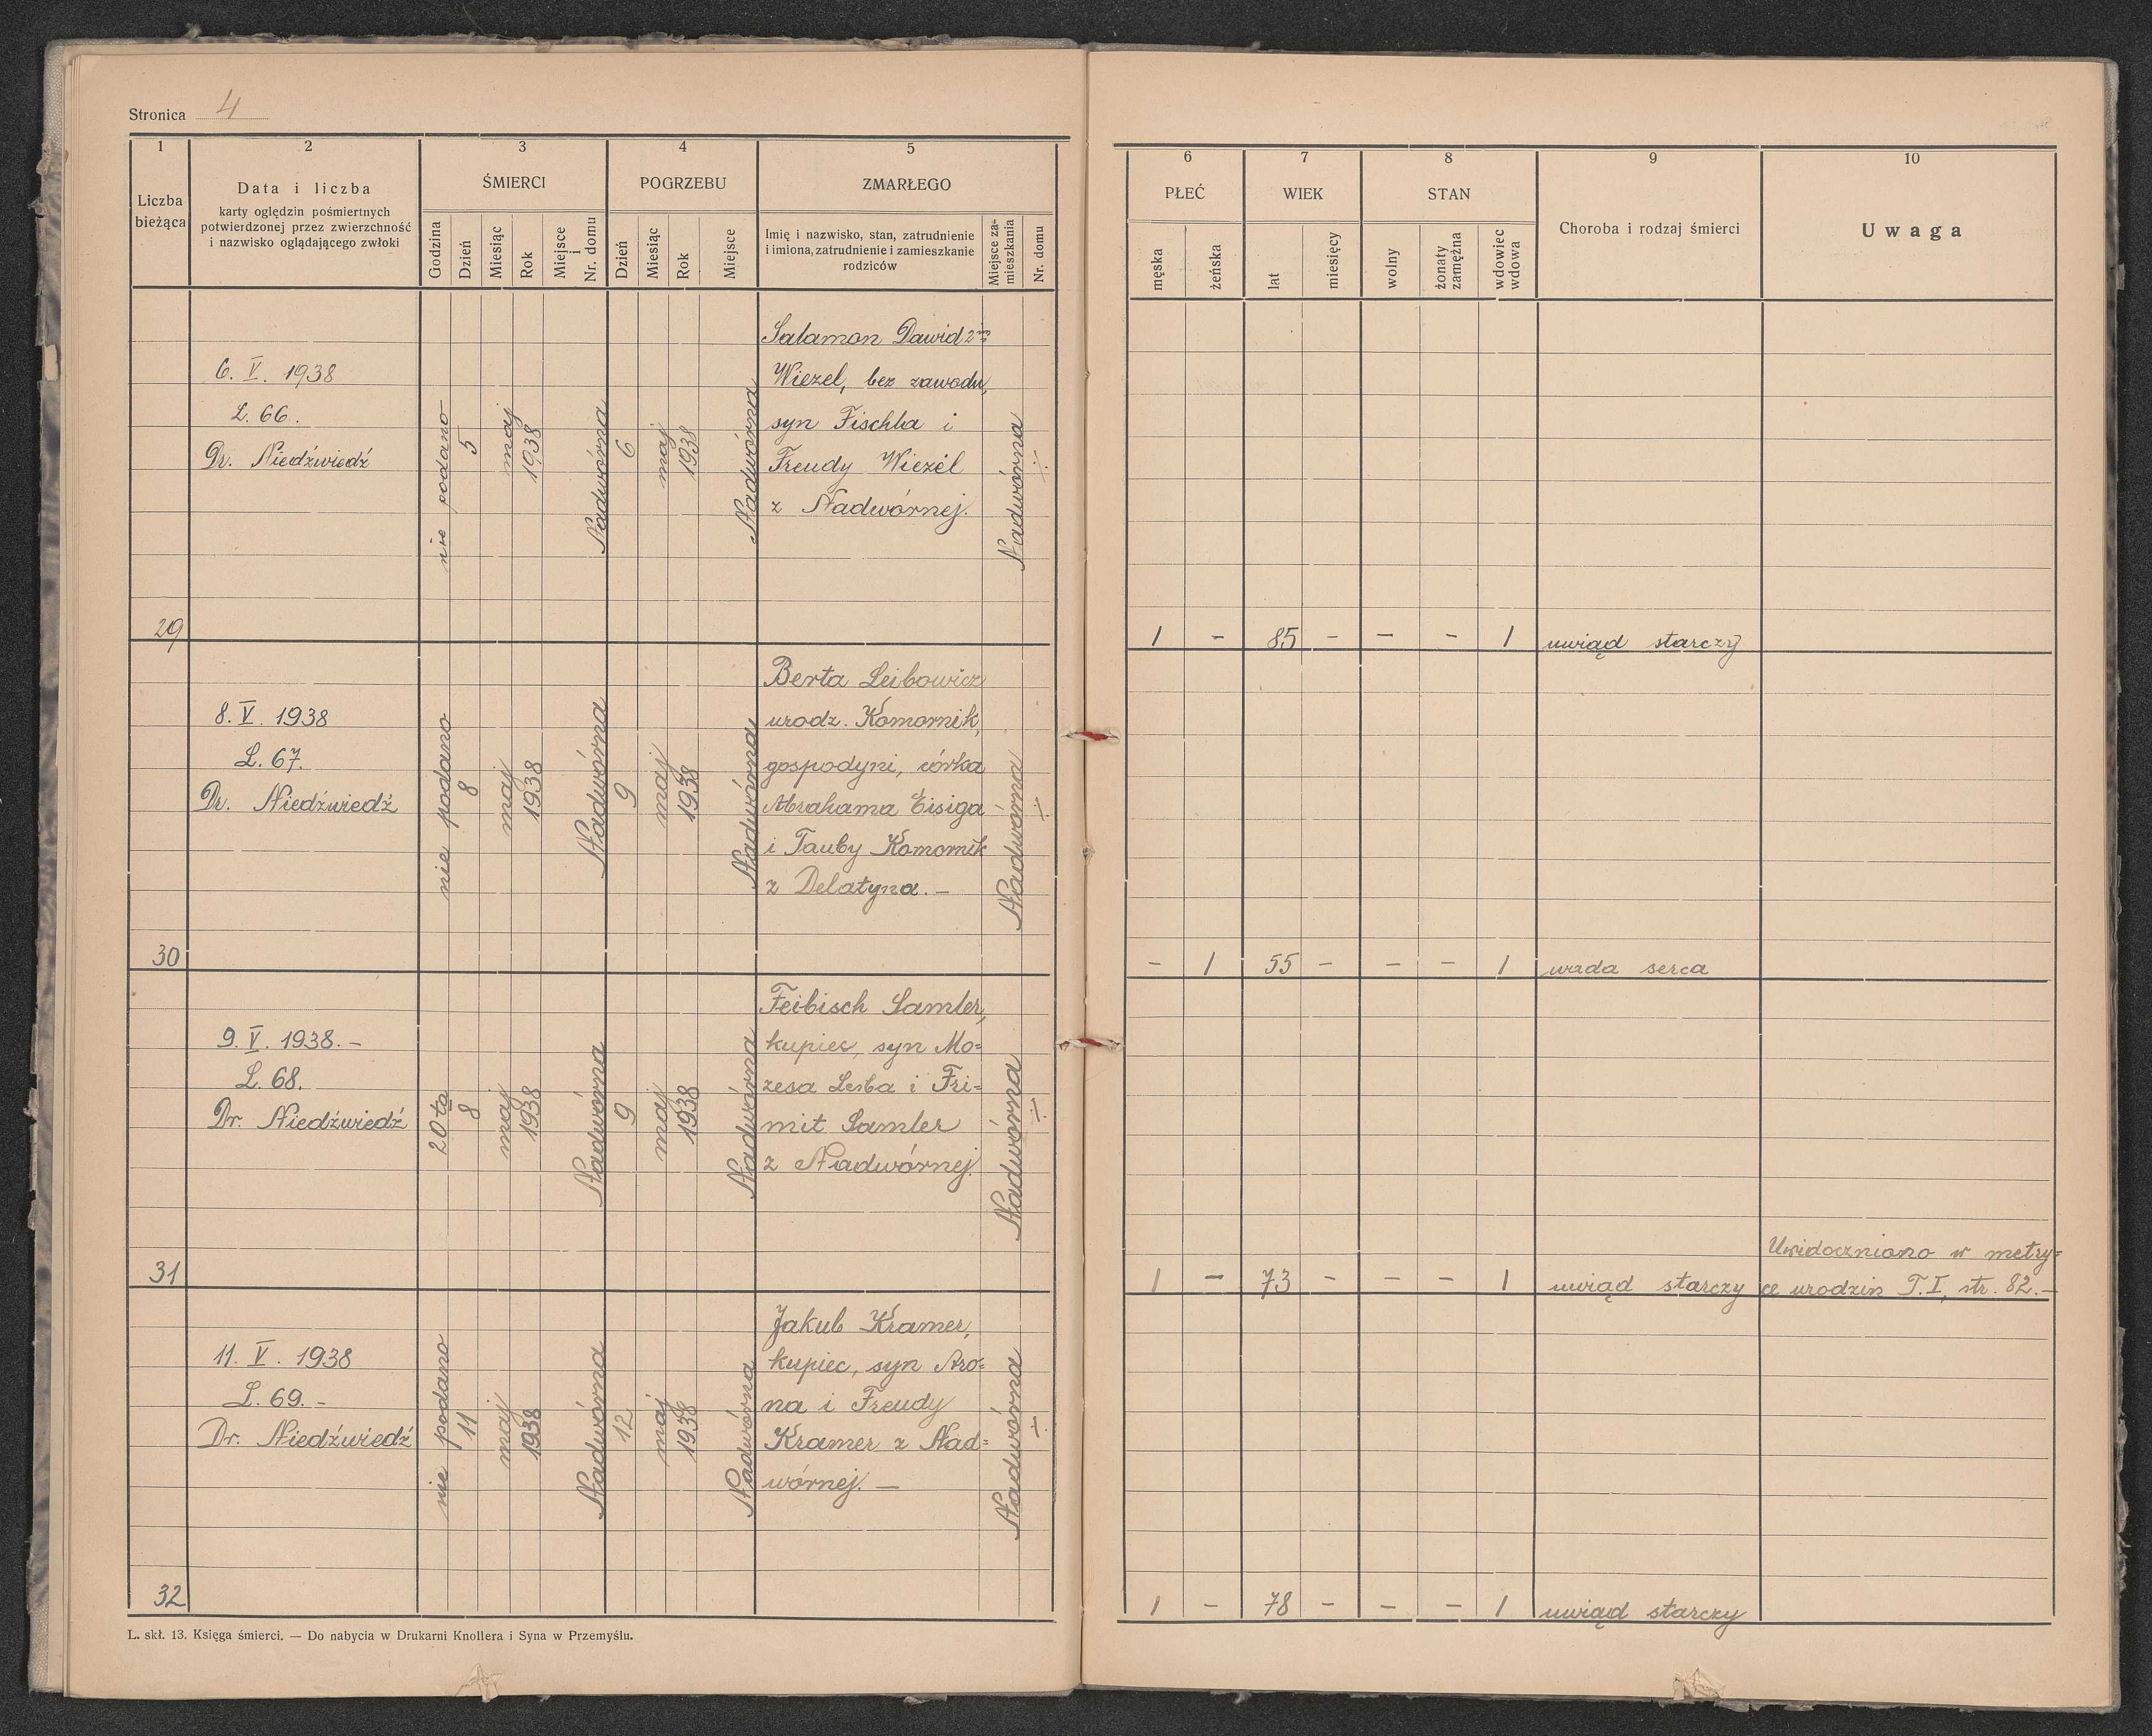 Stronica 4
1
2
3
4
5
Liczba
bieżąca
Data i liczba
karty oględzin pośmiertnych
potwierdzonej przez zwierzchność
i nazwisko oglądającego zwłoki
ŚMIERCI
Godzina
Dzień
Miesiąc
Rok
Miejsce
i
Nr. domu
POGRZEBU
Dzień
Miesiąc
Rok
Miejsce
ZMARŁEGO
Imię i nazwisko, stan, zatrudnienie
i imiona, zatrudnienie i zamieszkanie
rodziców
Miejsce za-
mieszkania
Nr. domu
6
7
8
9
10
PŁEĆ
męska
żeńska
WIEK
lat
miesięcy
STAN
wolny
żonaty
zamężna
wdowiec
wdowa
Choroba i rodzaj śmierci
Uwaga
29
6. V. 1938
L. 66.
Dr. Niedźwiedź
nie podano
5
maj
1938
Nadwórna
6
maj
1938
Nadwórna
Salamon Dawid 2im
Wiezel, bez zawodu,
syn Fischla i
Freudy Wiezel
z Nadwórnej.
Nadwórna
÷
1 - 85 - - - 1 uwiąd starczy
30
8. V. 1938
L. 67.
Dr. Niedźwiedź
nie podano
8
maj
1938
Nadwórna
9
maj
1938
Nadwórna
Berta Leibowicz
urodz. Komornik,
gospodyni, córka
Abrahama Eisiga
i Tauby Komornik
z Delatyna. -
Nadwórna
÷
- 1 55 - - - 1 wada serca
31
9. V. 1938. -
L. 68.
Dr. Niedźwiedź
20ta
8
maj
1938
Nadwórna
9
maj
1938
Nadwórna
Feibisch Samler,
kupiec, syn Mo=
zesa Leiba i Fri=
mit Samler
z Nadwórnej.
Nadwórna
÷
1 - 73 - - - 1 uwiąd starczy
Uwidoczniono w metry=
ce urodzin T. I, str. 82. -
32
11. V. 1938
L. 69. -
Dr. Niedźwiedź
nie podano
11
maj
1938
Nadwórna
12
maj
1938
Nadwórna
Jakub Kramer,
kupiec, syn Aro=
na i Freudy
Kramer z Nad=
wórnej. -
Nadwórna
÷
1 - 78 - - - 1 uwiąd starczy
L. skł. 13. Księga śmierci. — Do nabycia w Drukarni Knollera i Syna w Przemyślu.